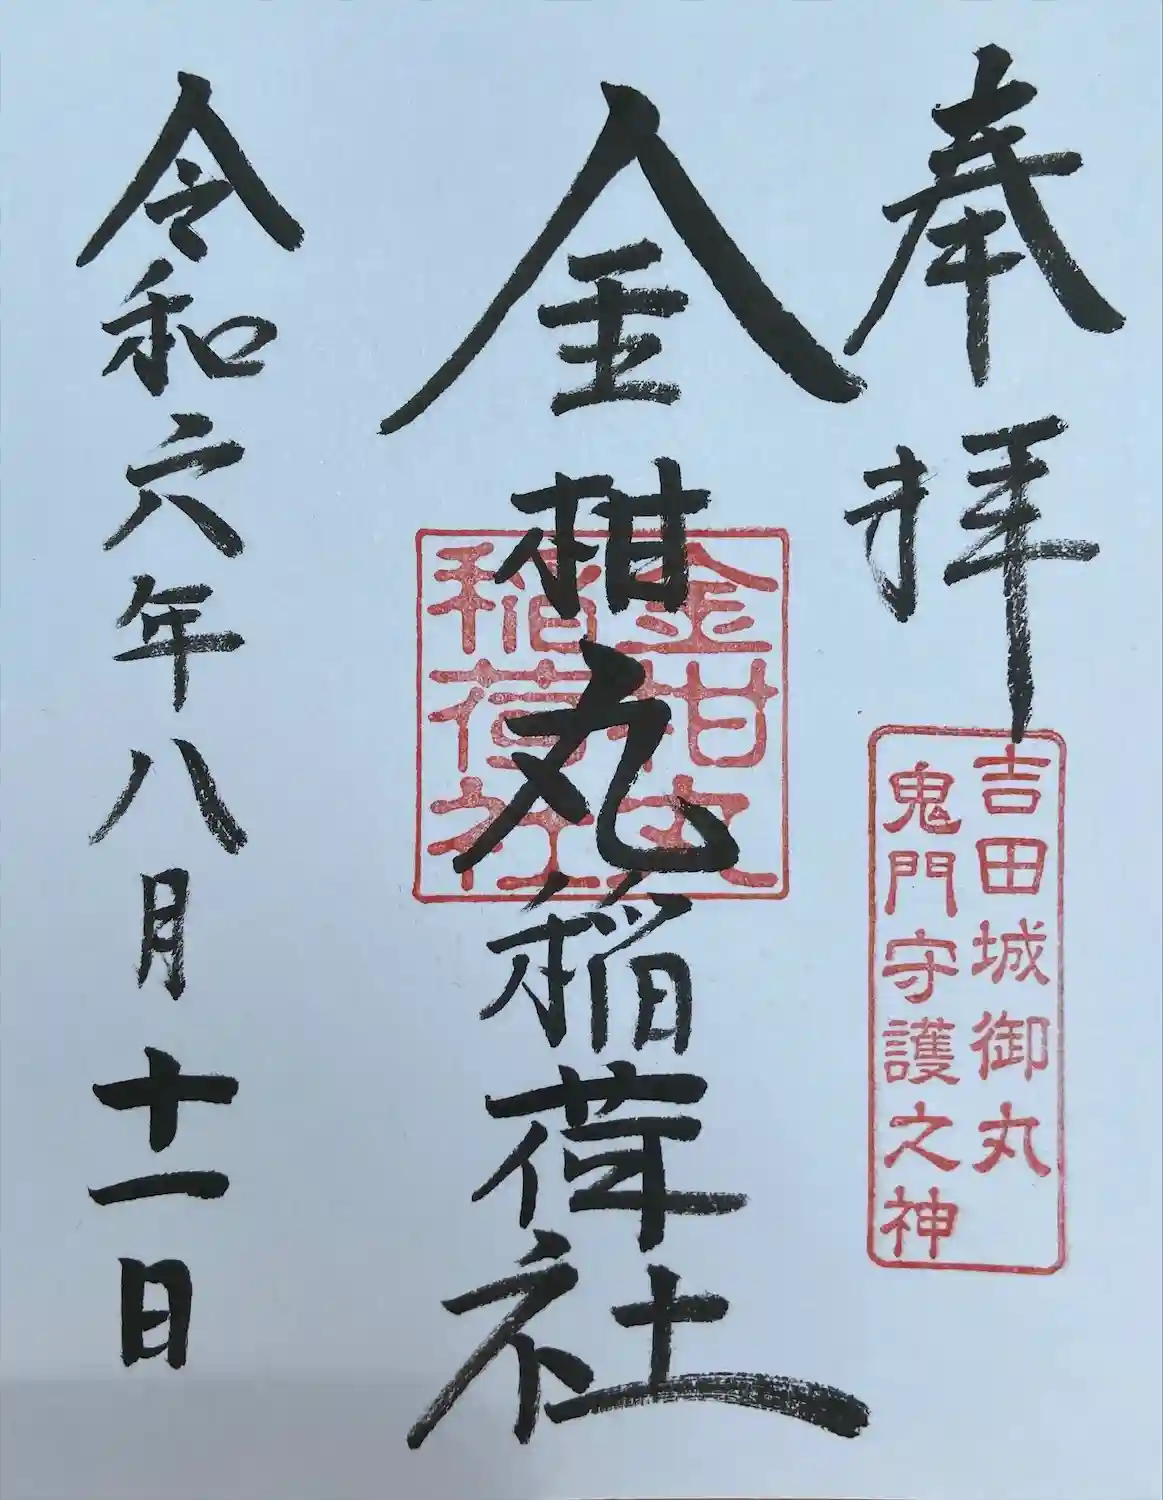 奉拝
吉田城御丸
鬼門守護之神
金柑丸稲荷社
金柑丸
稲荷社
令和六年八月十一日